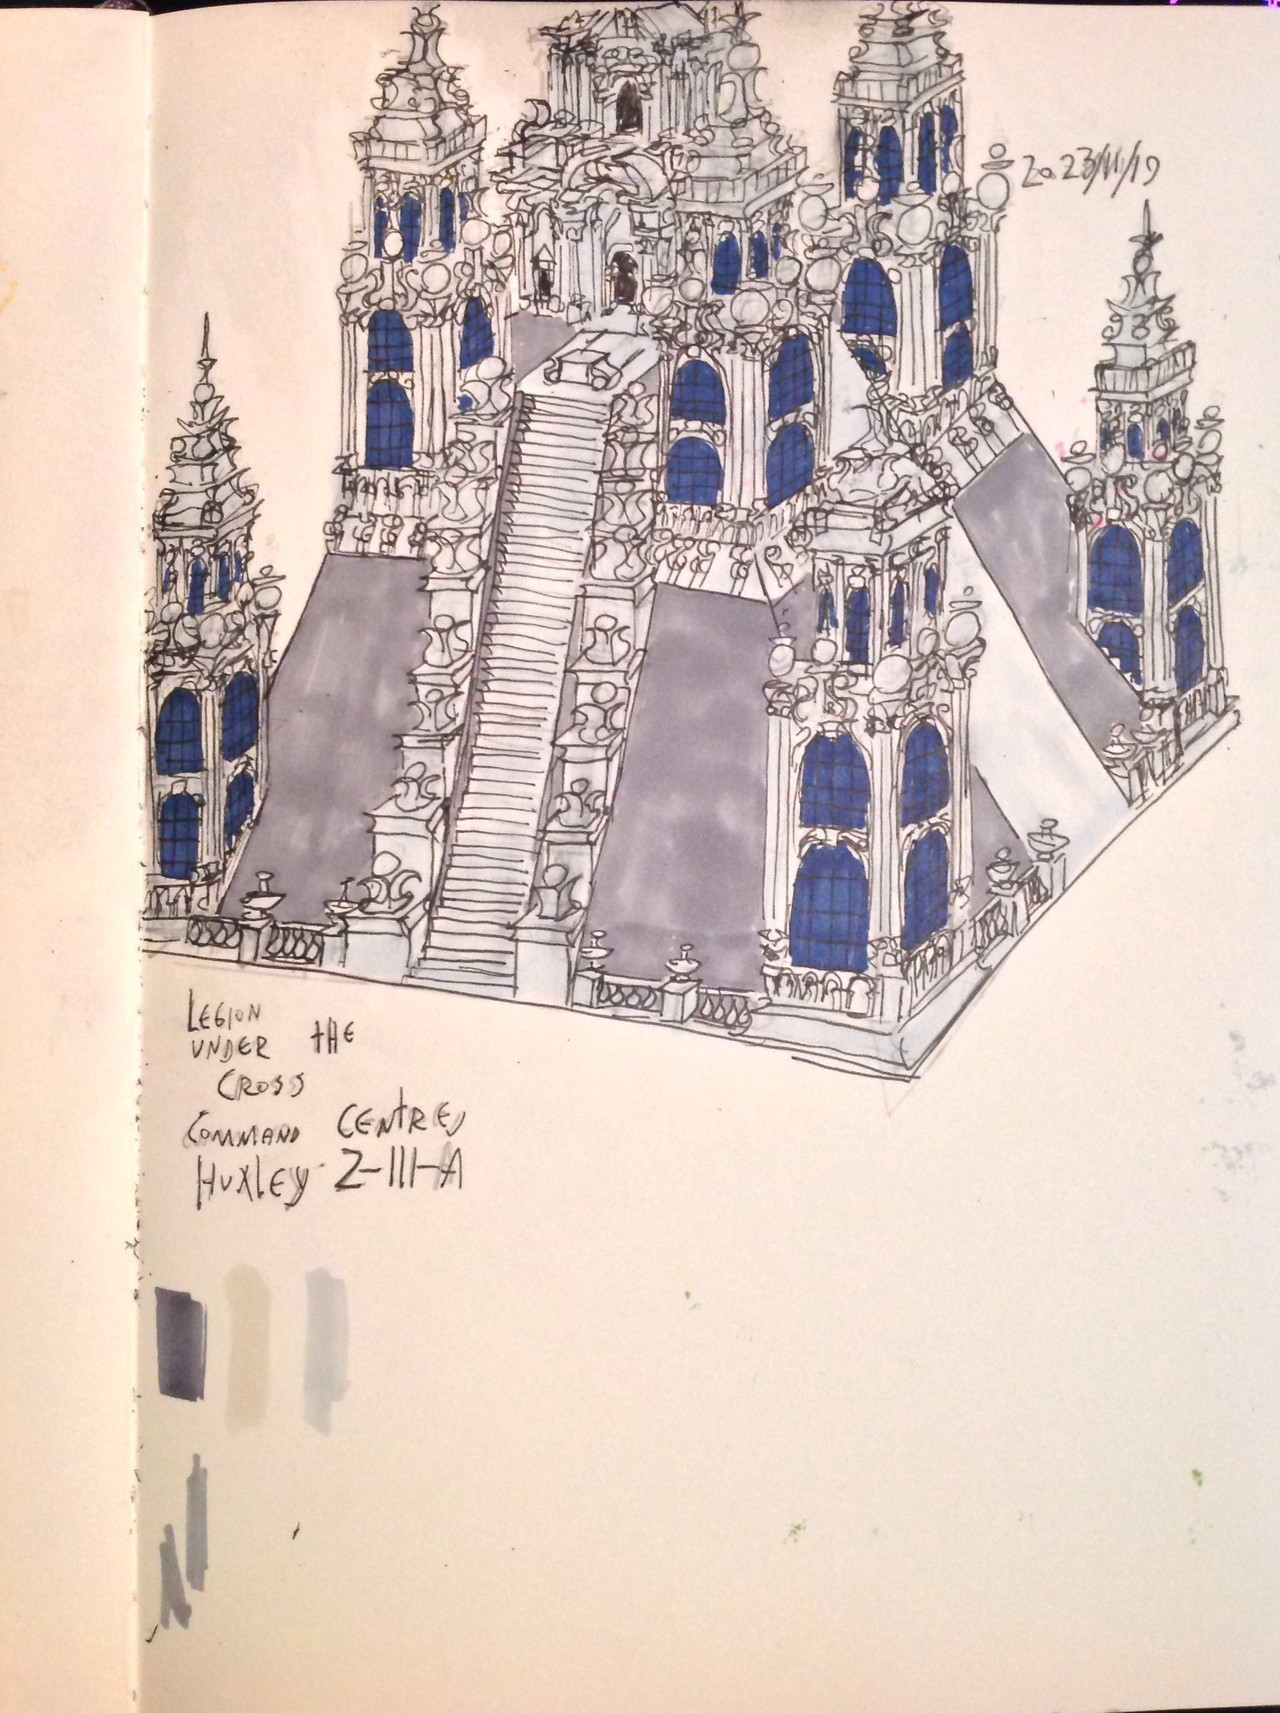 2023/11/19
LEGION
UNDER THE
CROSS
COMMAND CENTRE,
HUXLEY Z-III-A